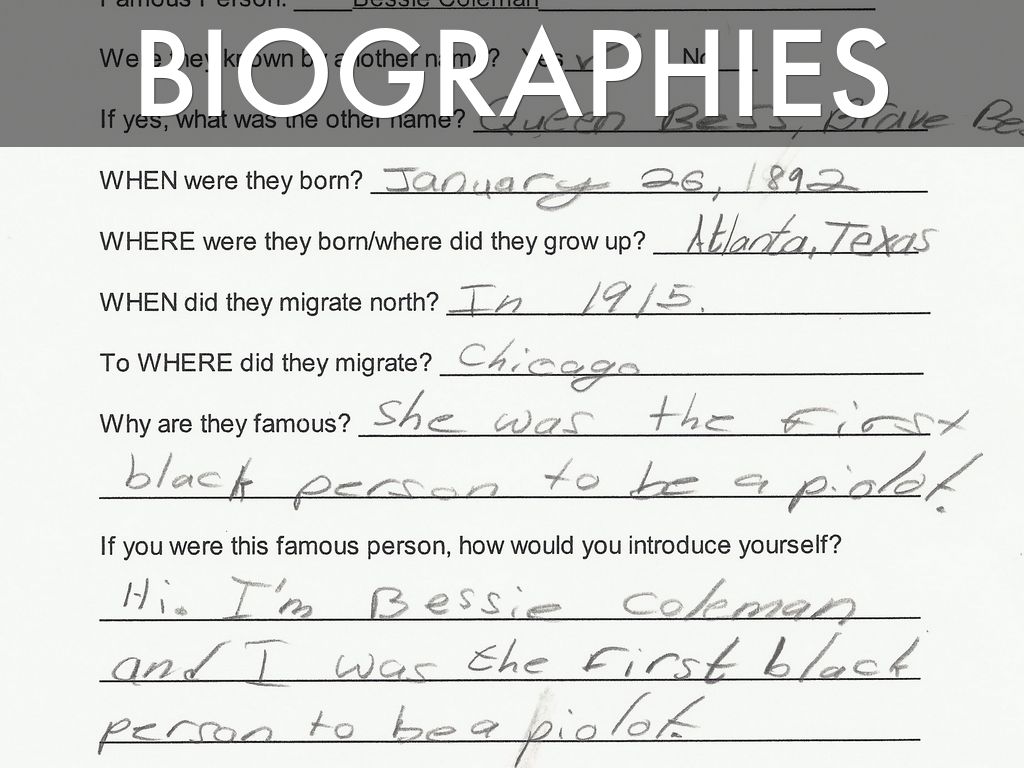 Famous Person: Bessie Coleman
BIOGRAPHIES
Were they known by another name? Yes ✓ No
If yes, what was the other name? Queen Bess, Brave Bes
WHEN were they born? January 26, 1892
WHERE were they born/where did they grow up? Atlanta, Texas
WHEN did they migrate north? In 1915.
To WHERE did they migrate? Chicago
Why are they famous? She was the first
black person to be a piolot.
If you were this famous person, how would you introduce yourself?
Hi. I'm Bessie Coleman
and I was the first black
person to be a piolot.